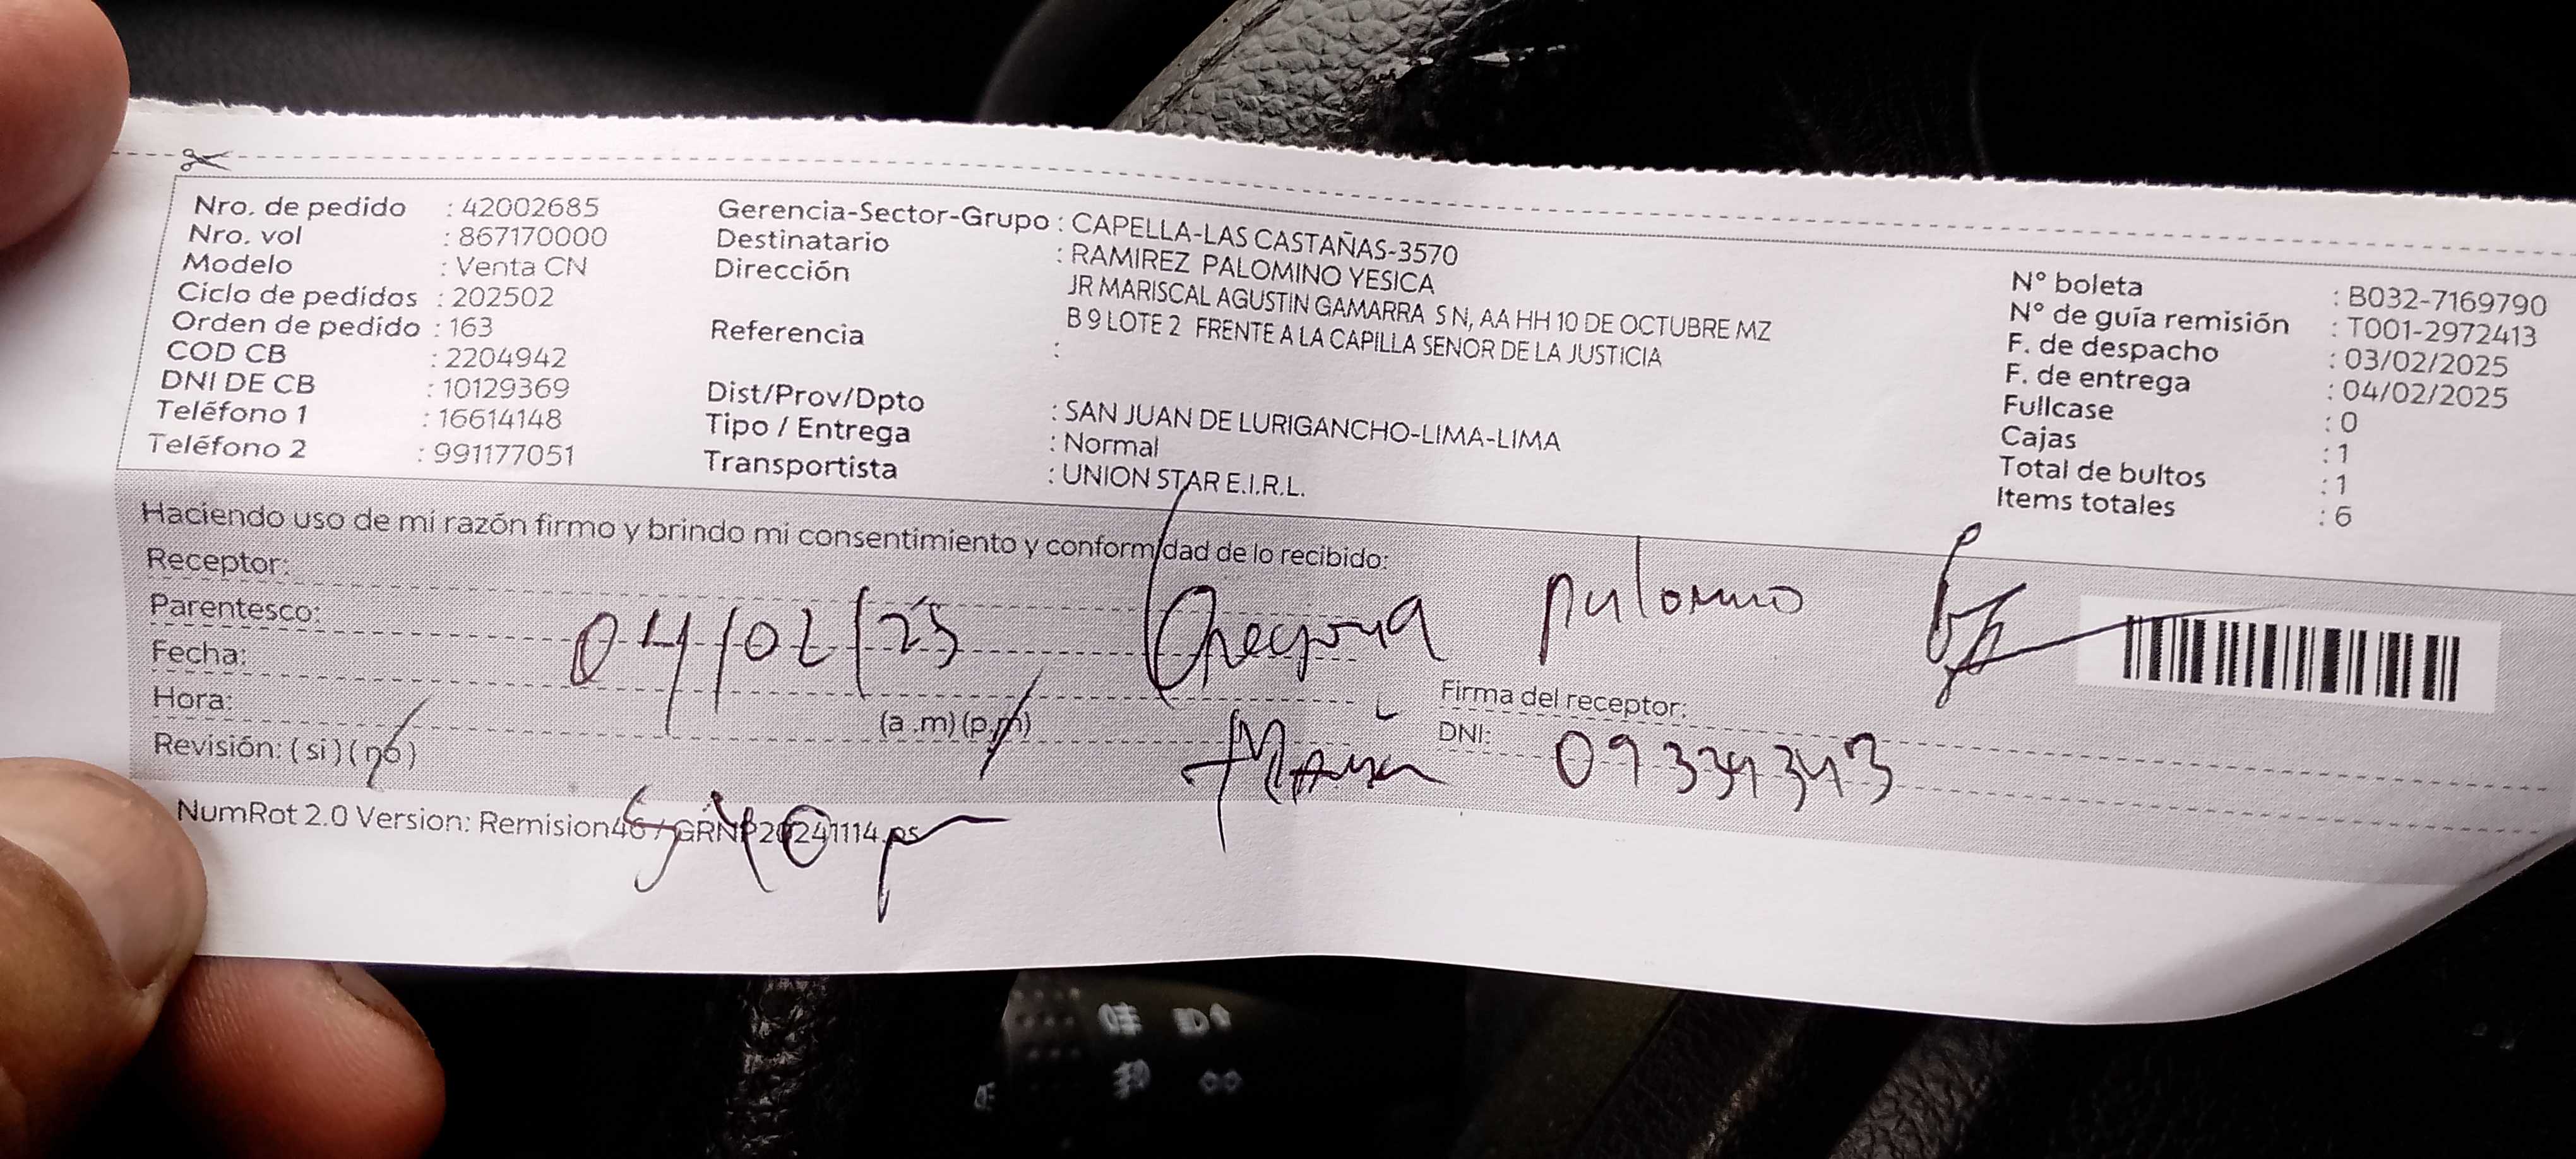 Nro. de pedido : 42002685
Nro. vol : 867170000
Modelo : Venta CN
Ciclo de pedidos : 202502
Orden de pedido : 163
COD CB : 2204942
DNI DE CB : 10129369
Teléfono 1 : 16614148
Teléfono 2 : 991177051
Gerencia-Sector-Grupo : CAPELLA-LAS CASTAÑAS-3570
Destinatario : RAMIREZ PALOMINO YESICA
Dirección : JR MARISCAL AGUSTIN GAMARRA S N, AA HH 10 DE OCTUBRE MZ
B 9 LOTE 2 FRENTE A LA CAPILLA SENOR DE LA JUSTICIA
Referencia :
Dist/Prov/Dpto : SAN JUAN DE LURIGANCHO-LIMA-LIMA
Tipo / Entrega : Normal
Transportista : UNION STAR E.I.R.L.
N° boleta : B032-7169790
N° de guía remisión : T001-2972413
F. de despacho : 03/02/2025
F. de entrega : 04/02/2025
Fullcase : 0
Cajas : 1
Total de bultos : 1
Items totales : 6
Haciendo uso de mi razón firmo y brindo mi consentimiento y conformidad de lo recibido:
Receptor:
Parentesco:
Fecha: 04/02/25
Hora: (a .m) (p.m)
Revisión: ( si ) ( no )
palomino
Firma del receptor:
Mamá
DNI: 09339343
NumRot 2.0 Version: Remision46 / GRNP20241114.ps